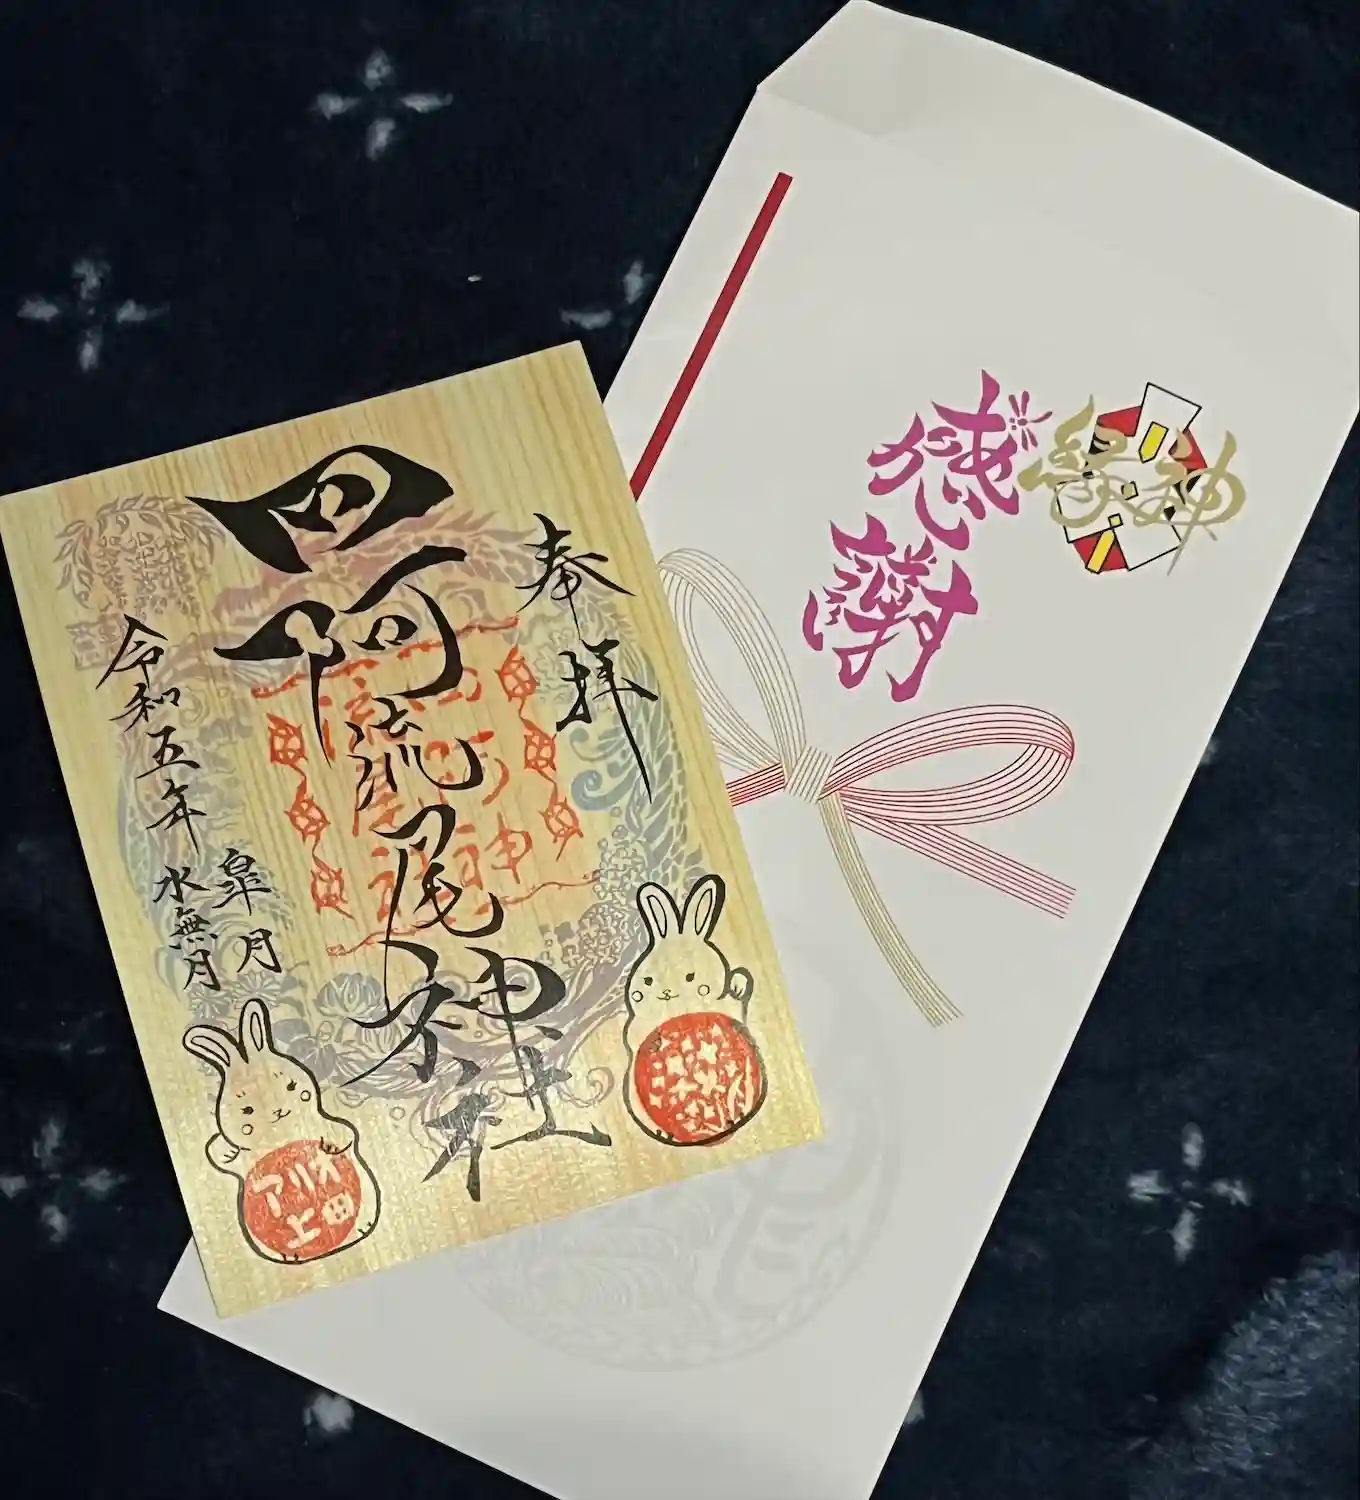 奉拝
四阿流尾神社
令和五年
皐月
水無月
アリオ
上田
感謝
縁神